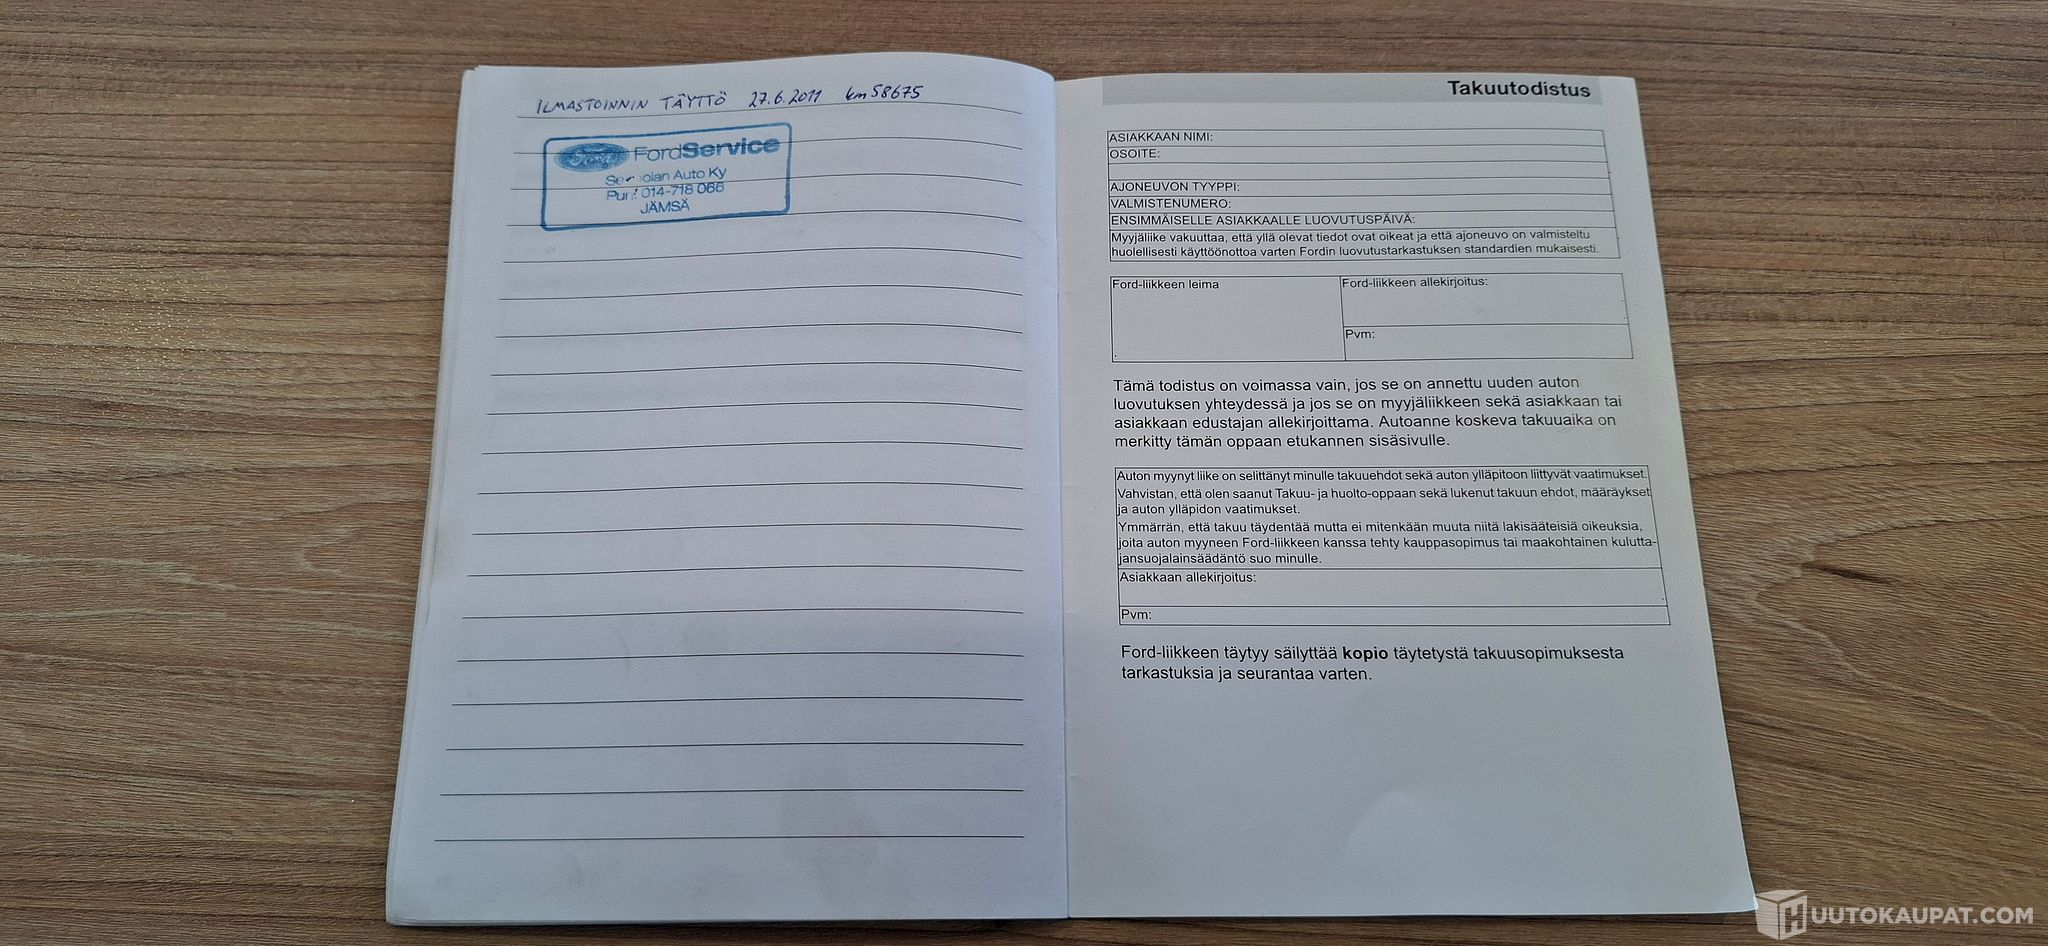 ILMASTOINNIN TÄYTTÖ 27.6.2011 km 58675
Ford FordService
Auto Ky
014-718 066
JÄMSÄ
Takuutodistus
ASIAKKAAN NIMI:
OSOITE:
AJONEUVON TYYPPI:
VALMISTENUMERO:
ENSIMMÄISELLE ASIAKKAALLE LUOVUTUSPÄIVÄ:
Myyjäliike vakuuttaa, että yllä olevat tiedot ovat oikeat ja että ajoneuvo on valmisteltu
huolellisesti käyttöönottoa varten Fordin luovutustarkastuksen standardien mukaisesti.
Ford-liikkeen leima
Ford-liikkeen allekirjoitus:
Pvm:
Tämä todistus on voimassa vain, jos se on annettu uuden auton
luovutuksen yhteydessä ja jos se on myyjäliikkeen sekä asiakkaan tai
asiakkaan edustajan allekirjoittama. Autoanne koskeva takuuaika on
merkitty tämän oppaan etukannen sisäsivulle.
Auton myynyt liike on selittänyt minulle takuuehdot sekä auton ylläpitoon liittyvät vaatimukset.
Vahvistan, että olen saanut Takuu- ja huolto-oppaan sekä lukenut takuun ehdot, määräykset
ja auton ylläpidon vaatimukset.
Ymmärrän, että takuu täydentää mutta ei mitenkään muuta niitä lakisääteisiä oikeuksia,
joita auton myyneen Ford-liikkeen kanssa tehty kauppasopimus tai maakohtainen kulutta-
jansuojalainsäädäntö suo minulle.
Asiakkaan allekirjoitus:
Pvm:
Ford-liikkeen täytyy säilyttää kopio täytetystä takuusopimuksesta
tarkastuksia ja seurantaa varten.
HUUTOKAUPAT.COM